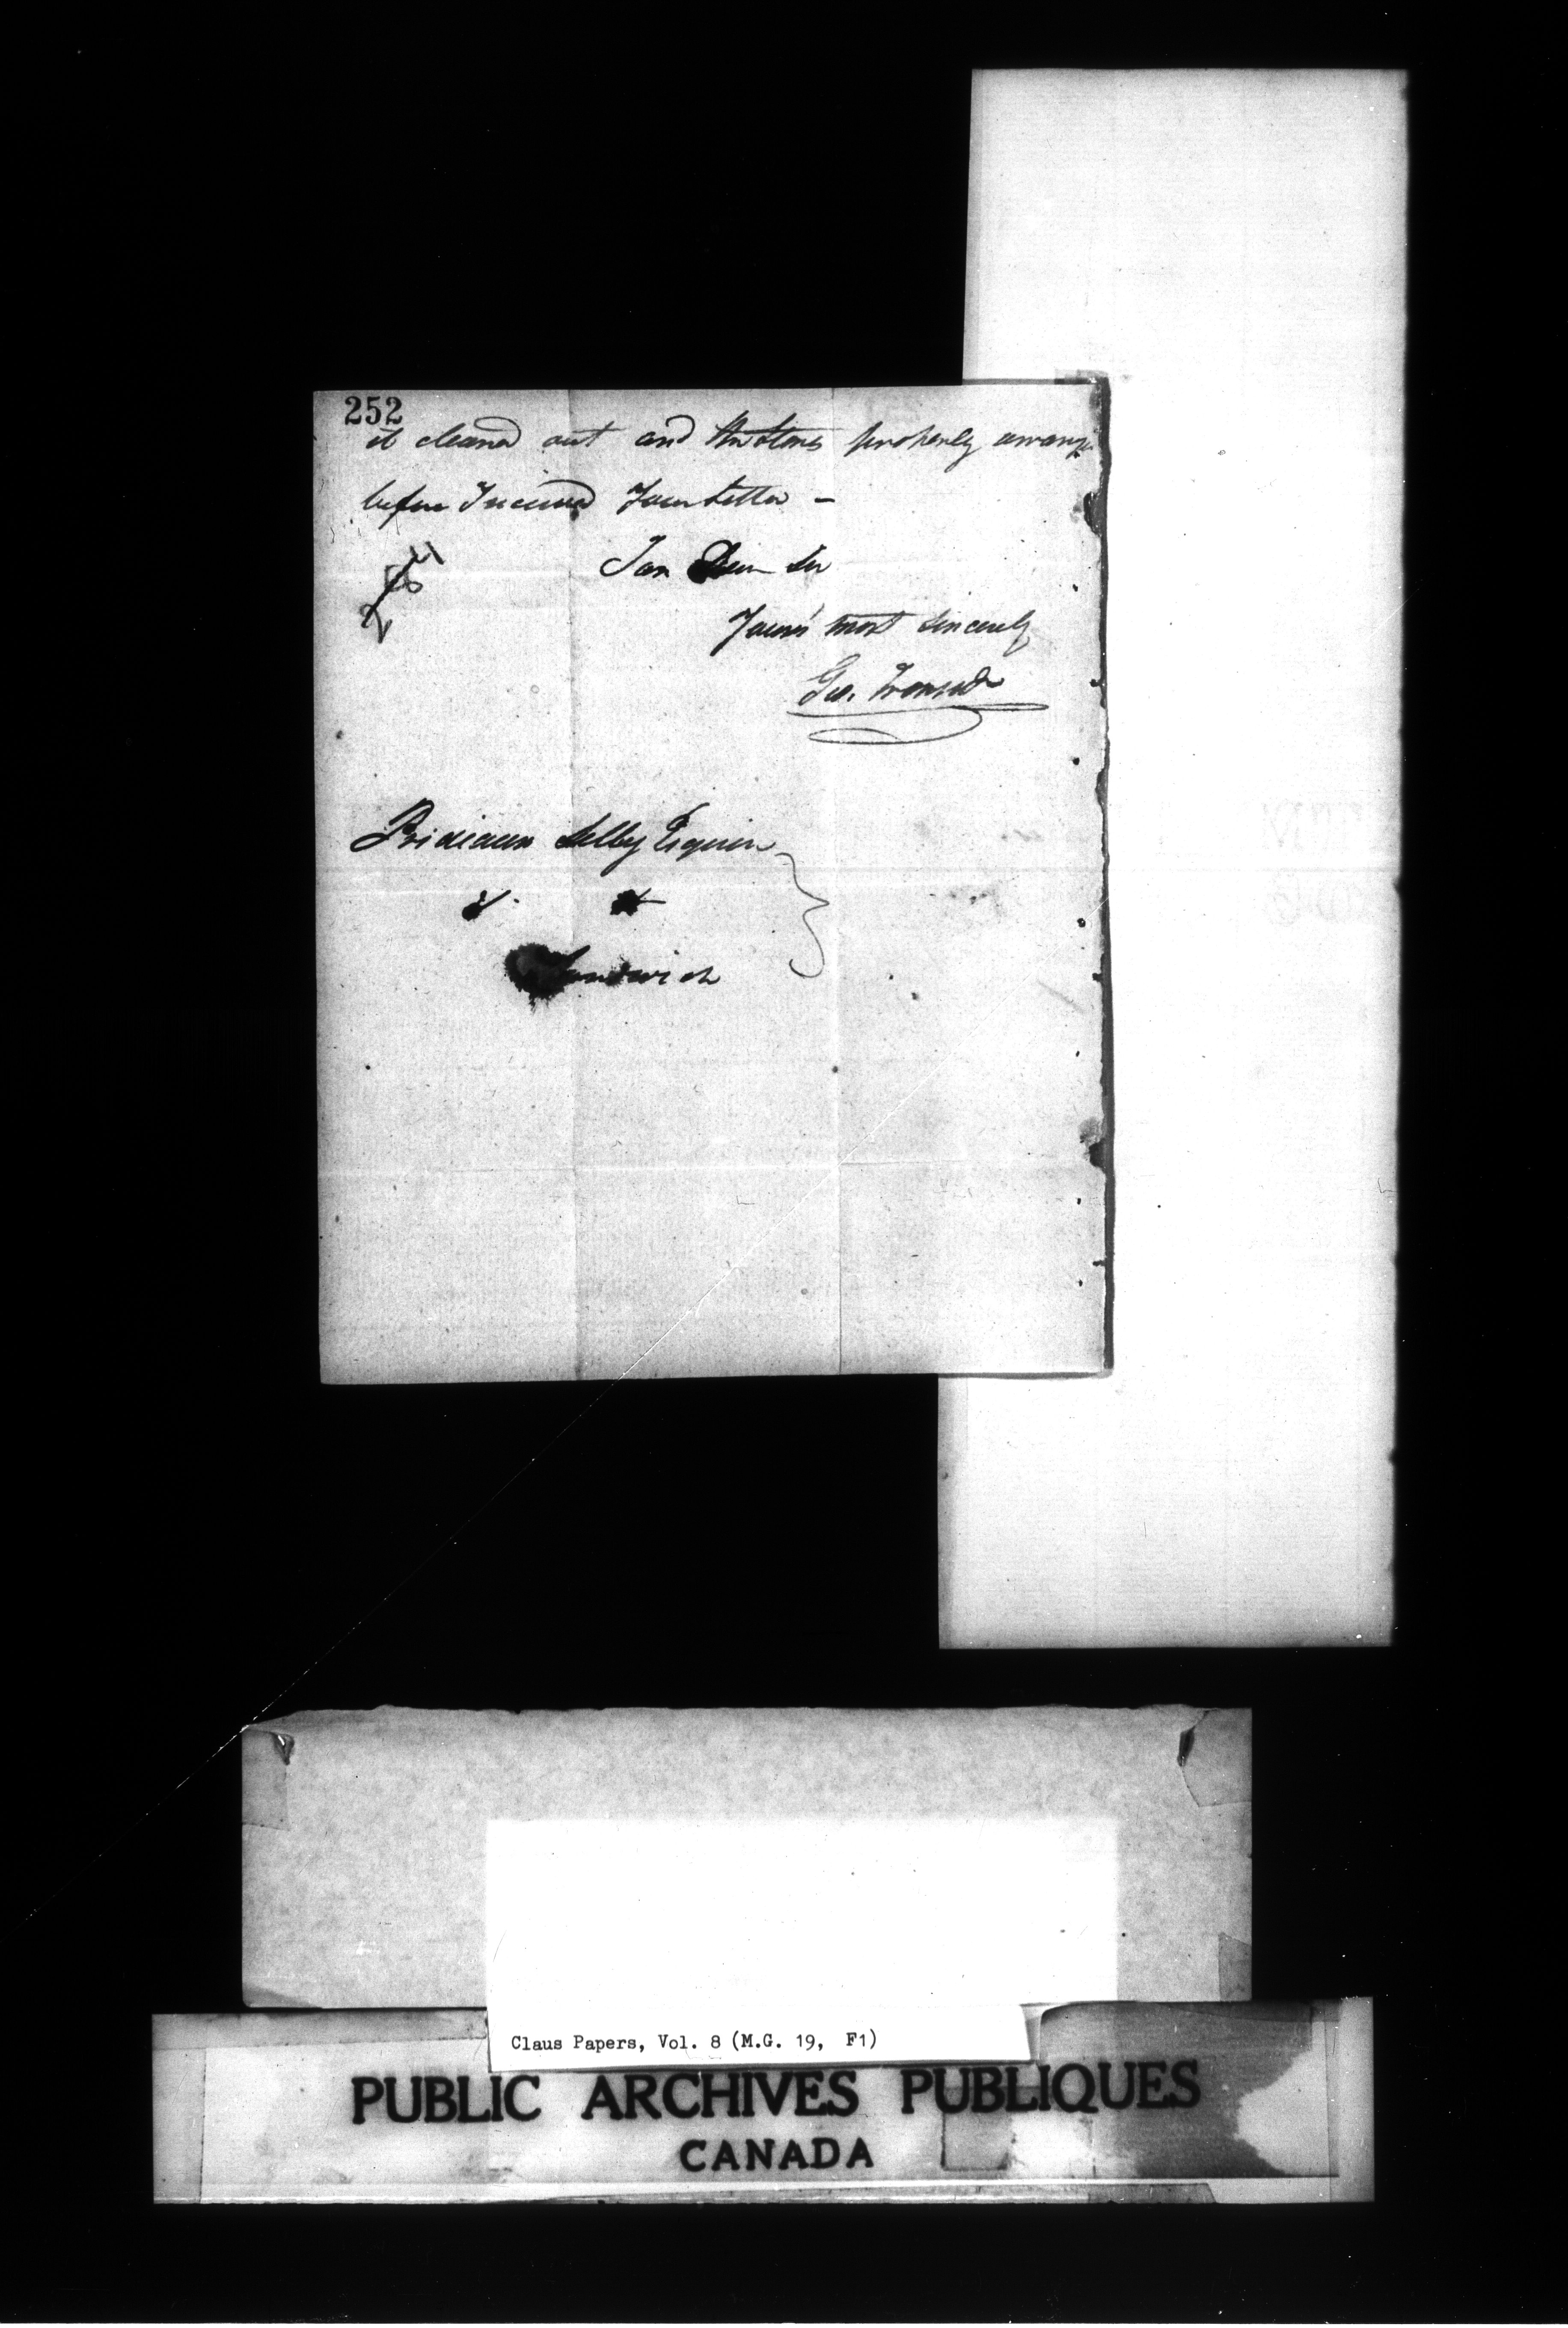 252
it cleaned out and the Stores properly arrang
before I received Your Letter –
I am Dear Sir
Your's most sincerely
Geo. Ironside
Prideaux Selby Esquire
Sandwich
Claus Papers, Vol. 8 (M.G. 19, F1)
PUBLIC ARCHIVES PUBLIQUES
CANADA